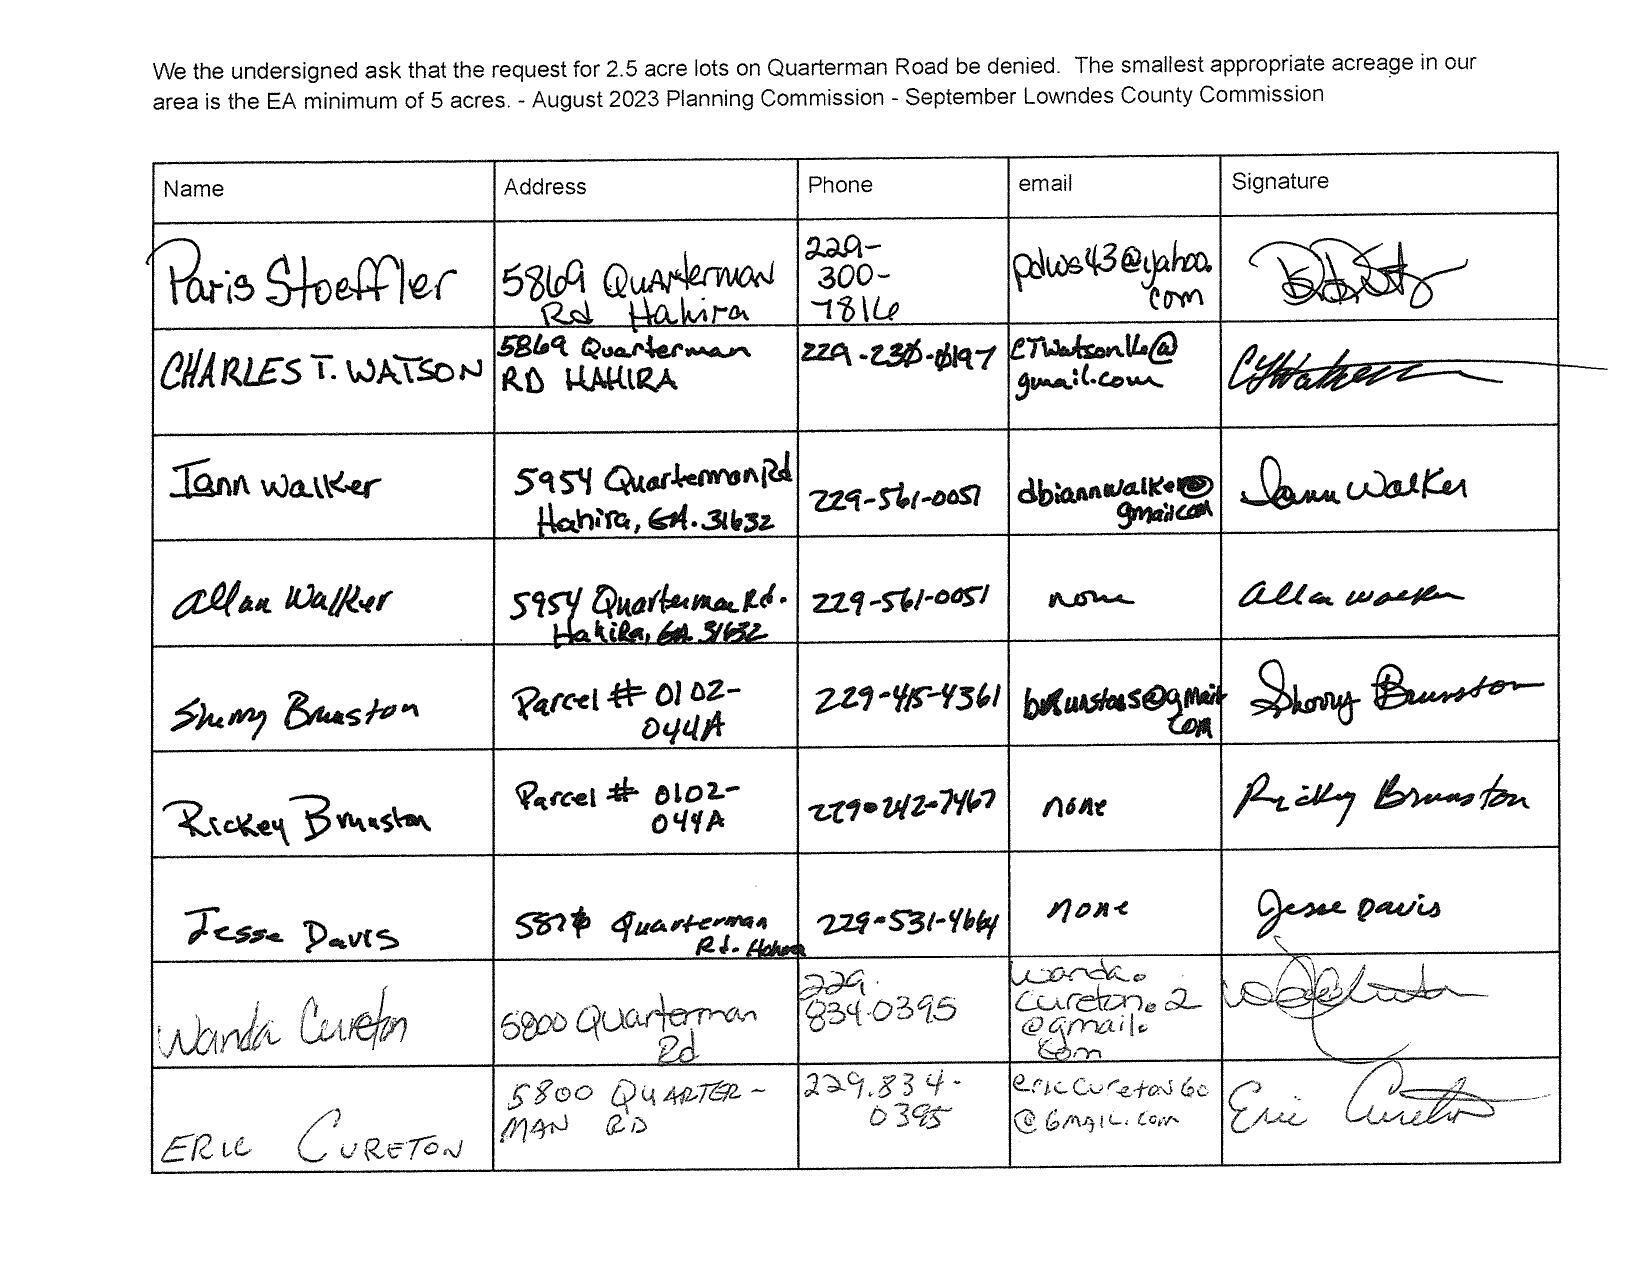 We the undersigned ask that the request for 2.5 acre lots on Quarterman Road be denied. The smallest appropriate acreage in our
area is the EA minimum of 5 acres. - August 2023 Planning Commission - September Lowndes County Commission
Name Address Phone email Signature
Paris Stoeffler
5869 Quarterman
Rd Hahira
229-
300-
7816
pdws43@yahoo.
com
CHARLES T. WATSON
5869 Quarterman
RD HAHIRA
229-230-0197
CTWatson16@
gmail.com
CTWatson
Iann Walker
5954 Quarterman Rd
Hahira, GA. 31632
229-561-0051
dbiannwalker@
gmail.com
Iann Walker
Allan Walker
5954 Quarterman Rd.
Hahira, GA 31632
229-561-0051
none
Allan Walker
Sherry Brunston
Parcel # 0102-
044A
229-415-4361
com
Sherry Brunston
Rickey Brunston
Parcel # 0102-
044A
229-242-7467
none
Ricky Brunston
Jesse Davis
5870 Quarterman
Rd. Hahira
229-531-4664
none
Jesse Davis
Wanda Cureton
5800 Quarterman
Rd
229.
834-0395
wanda.
cureton.2
@gmail.
com
ERIC CURETON
5800 QUARTER-
MAN RD
229.834-
0395
ericcureton60
@GMAIL.com
Eric Cureton